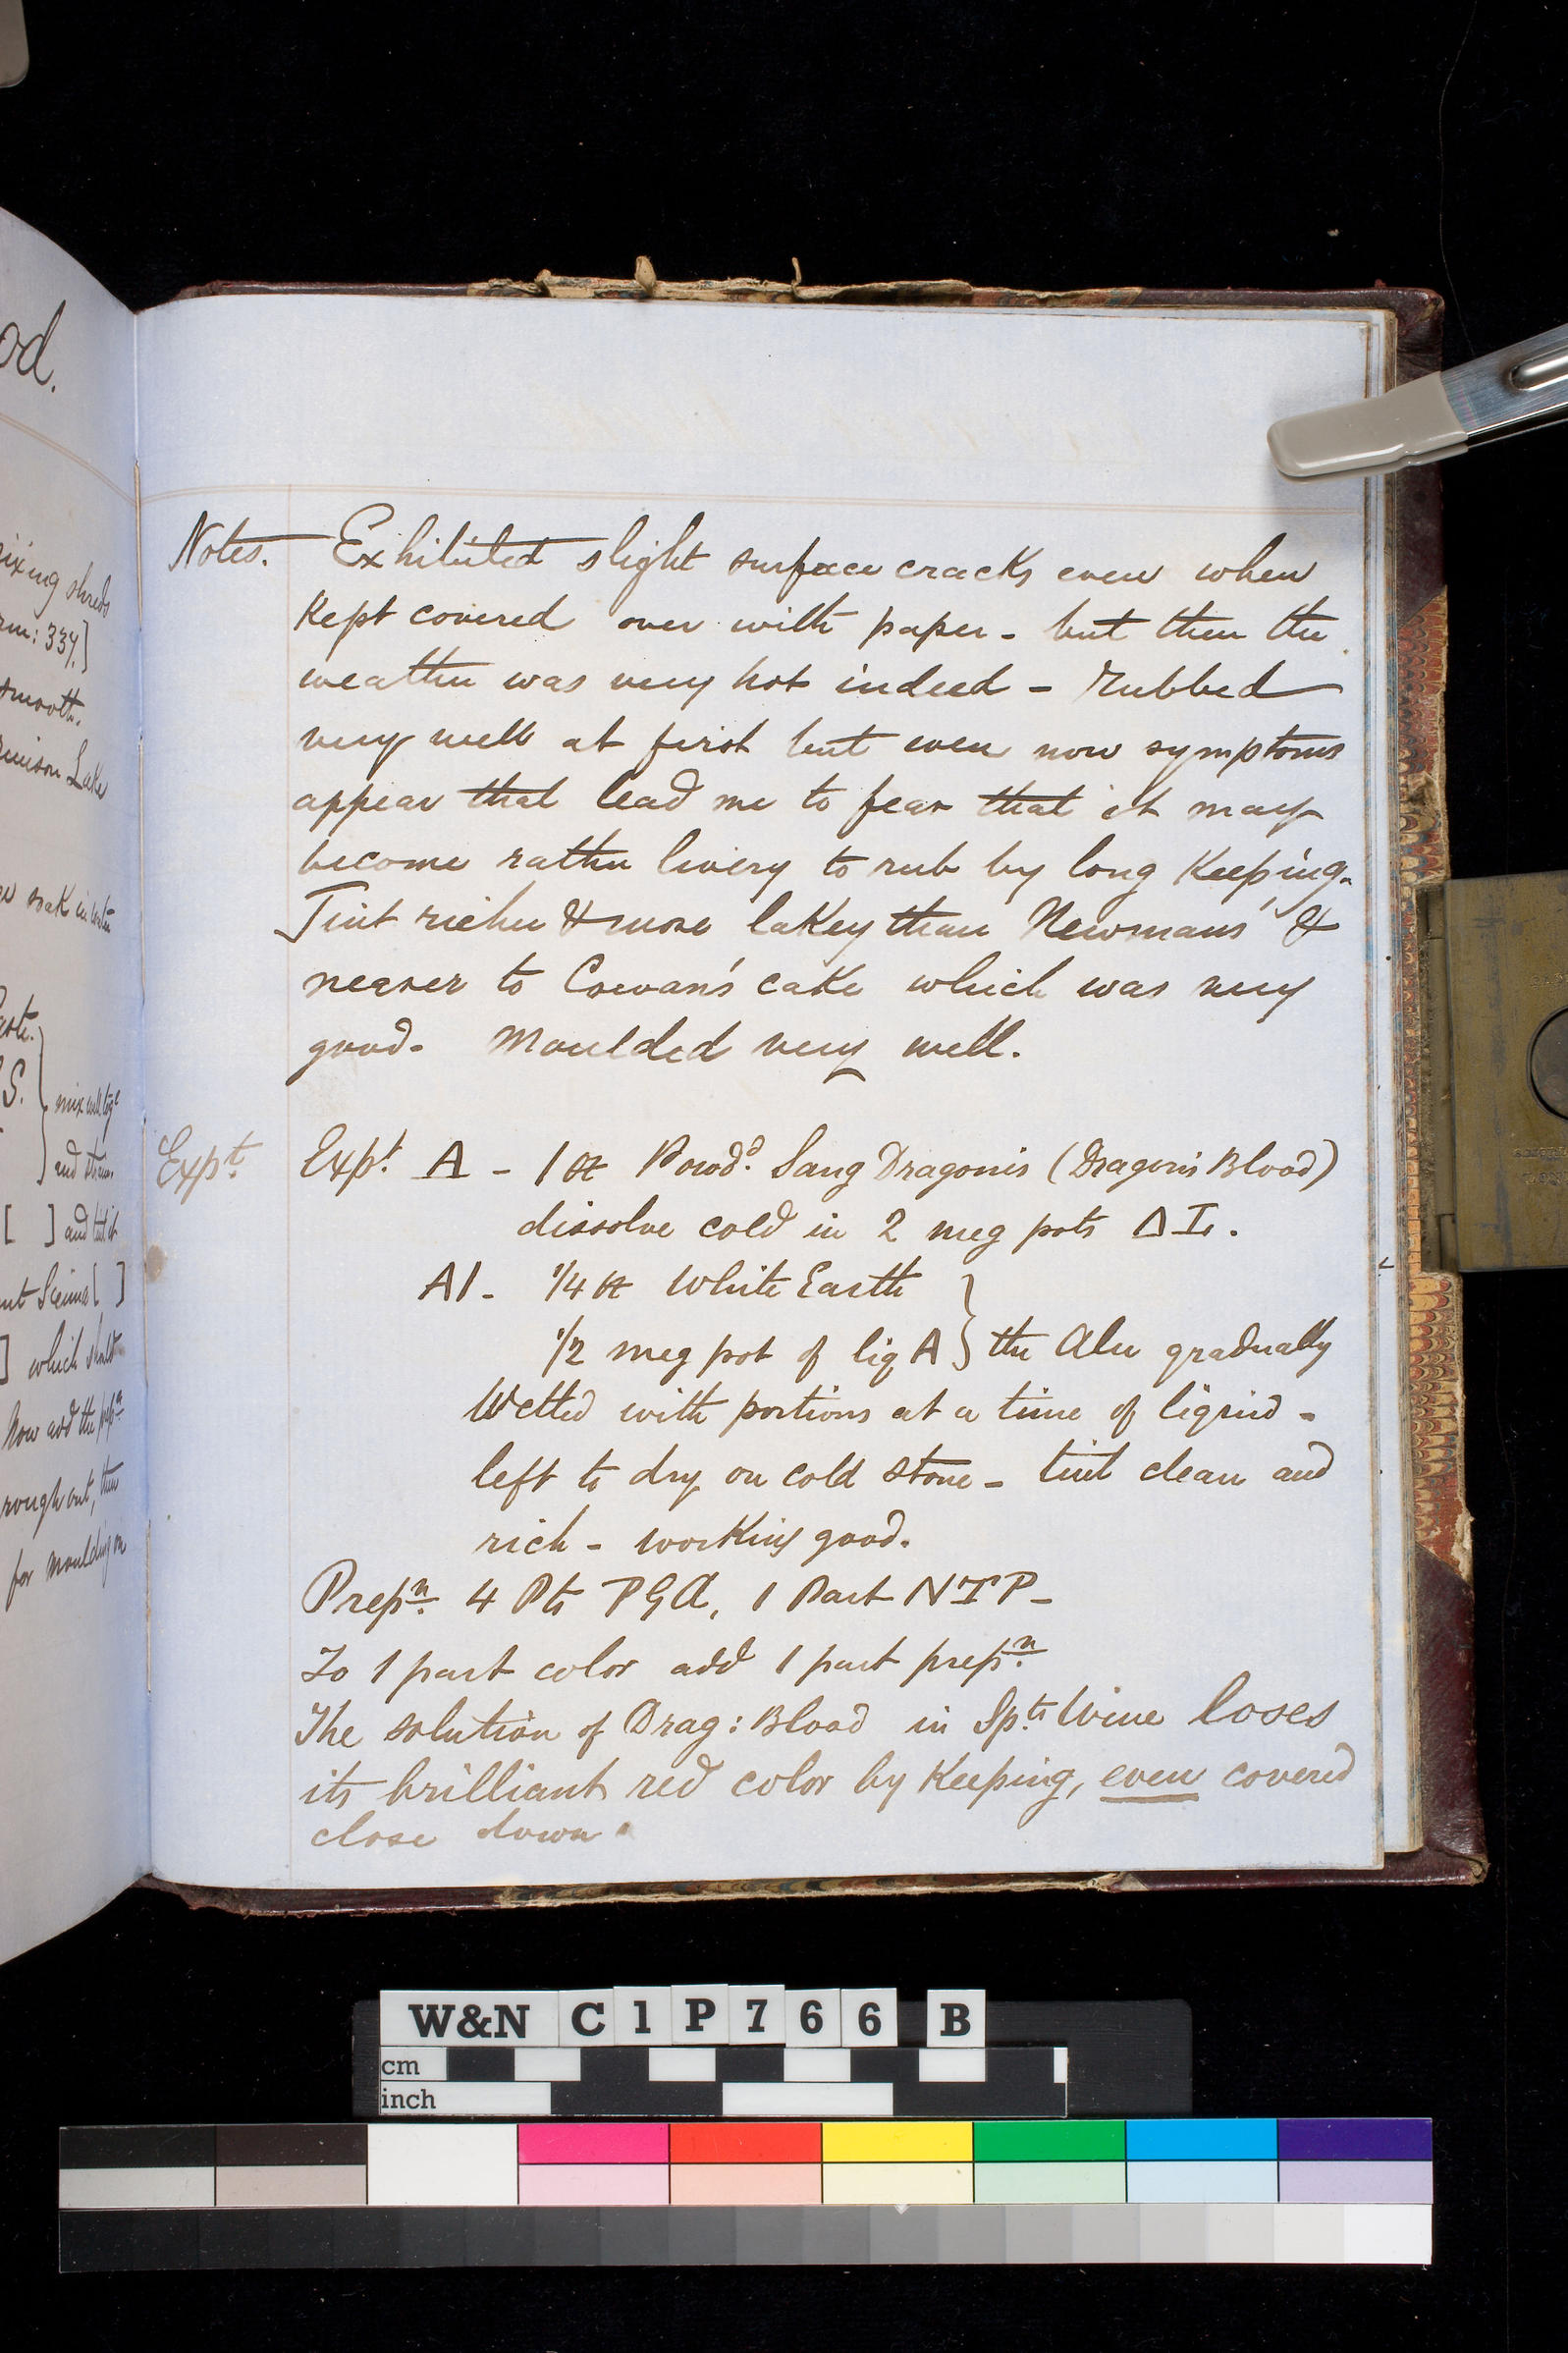 od.
ixing shreds
rm: 337.]
smooth.
rimson Lake
soak in water
Paste.
S. } mix well togr
and strain.
[ ] and tint it
[ ]
] which should
Now add the prepn
rough out, then
for moulding on
Notes. Exhibited slight surface cracks even when
Kept covered over with paper - but then the
weather was very hot indeed - Rubbed
very well at first but even now symptoms
appear that lead me to fear that it may
become rather livery to rub by long Keeping.
Tint richer & more lakey than Newmans' &
nearer to Cowan's cake which was very
good. Moulded very well.
Expt Expt A - 1 lb Powdd. Sang Dragonis (Dragon's Blood)
dissolve cold in 2 meg pots Δ I.
A1 - 1/4 lb White Earth
1/2 meg pot of liq A } the Alu gradually
Wetted with portions at a time of liquid -
left to dry on cold stone - tint clean and
rich - working good.
Prepn. 4 Pts PGA, 1 Part NTP -
To 1 part color add 1 part prepn.
The solution of Drag: Blood in Spts Wine loses
its brilliant red color by Keeping, even covered
close down.
W&N C1P766 B
cm
inch